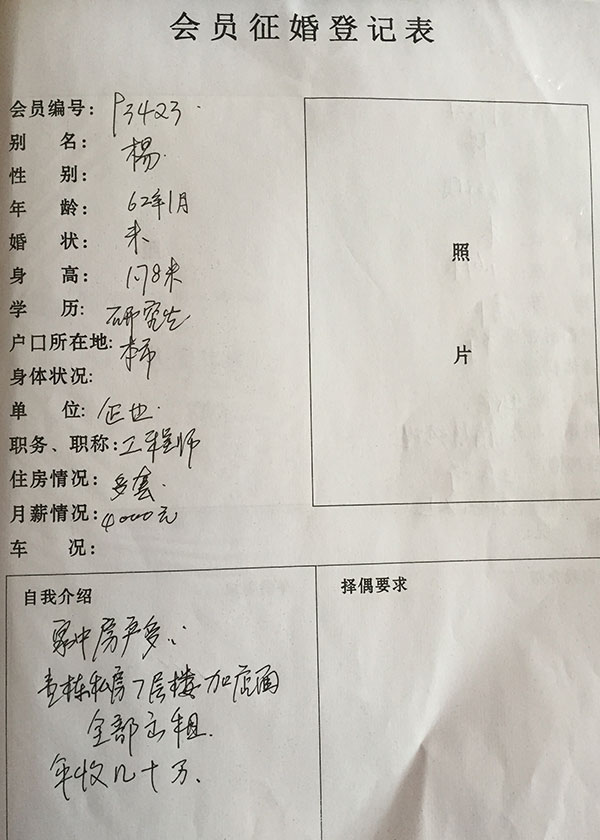 会员征婚登记表
会员编号: P3423.
别 名: 杨.
性 别:
年 龄: 62年1月
婚 状: 未
身 高: 1.78米
学 历: 研究生
户口所在地: 本市
身体状况:
单 位: 企业.
职务、职称: 工程师
住房情况: 多套.
月薪情况: 4000元
车 况:
照
片
自我介绍
家中房产多
壹栋私房7层楼加店面
全部出租.
年收几十万.
择偶要求